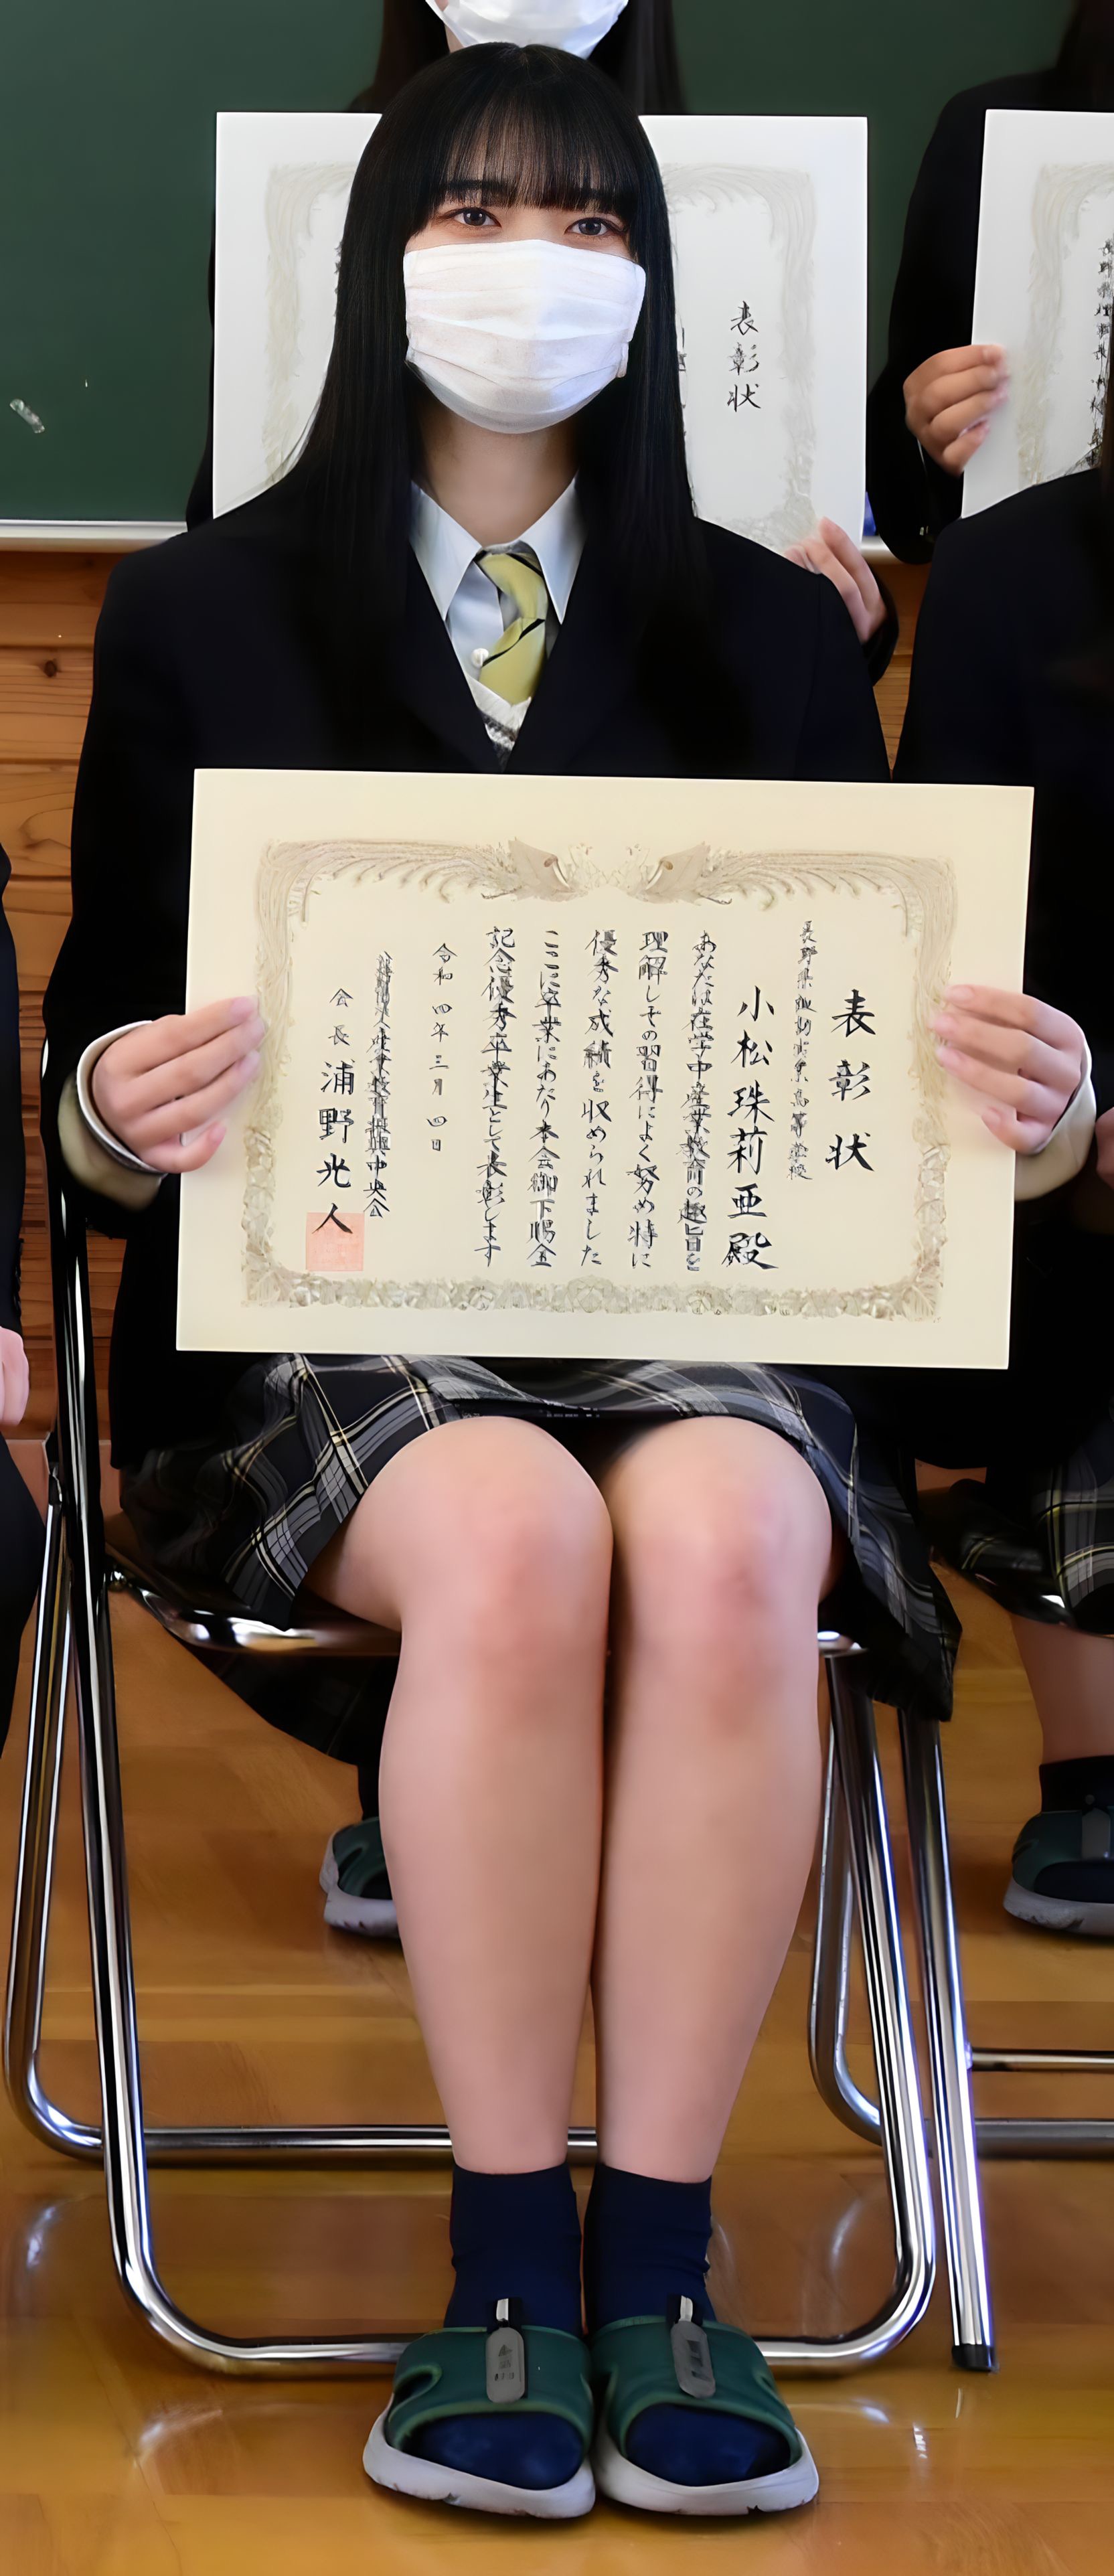 表彰状
長野県
高等学校
小松珠莉亜殿
あなたは在学中産業教育の趣旨を
理解しその習得によく努め特に
優秀な成績を収められました
ここに卒業にあたり本会御下賜金
記念優秀卒業生として表彰します
令和四年三月四日
産業教育振興中央会
会長 浦野光人
表彰状